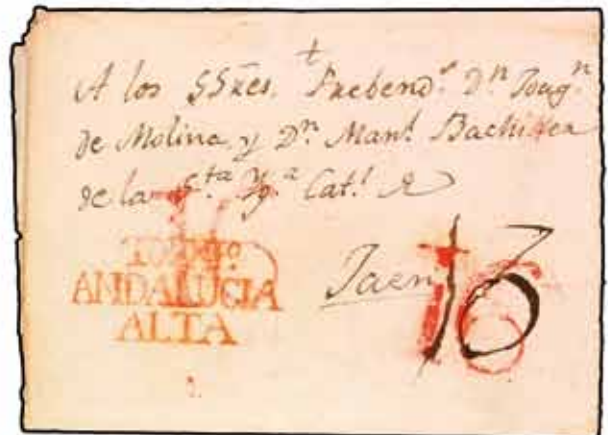 A los SSres. Prebend.s Dn Joaqn
de Molina, y Dn. Manl. Bachiller
de la S.ta Yg.a Cat.l de
Jaen
ANDALUCIA
ALTA
16